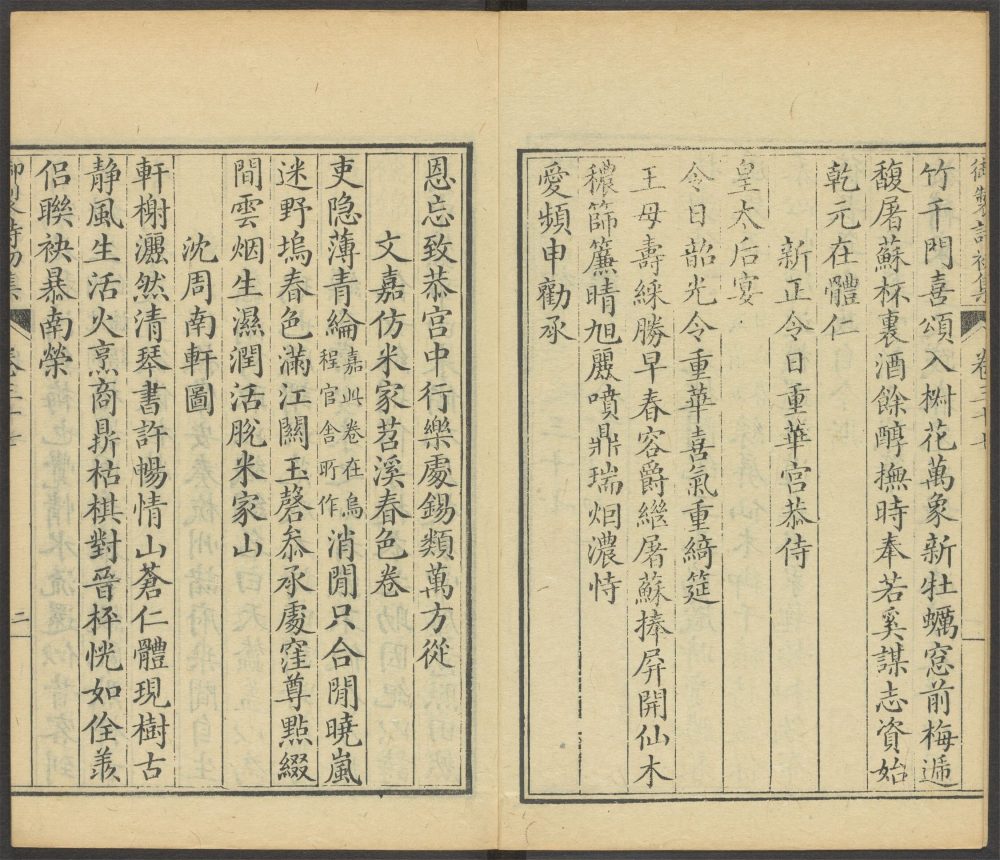 御製詩初集 卷三十七
竹千門喜頌入椒花萬象新牡蠣窓前梅遞
馥屠蘇杯裏酒餘醇撫時奉若奚謀志資始
乾元在體仁
新正令日重華宮恭侍
皇太后宴
令日韶光令重華喜氣重綺筵
王母壽綵勝早春容爵繼屠蘇捧屏開仙木
穠篩簾晴旭麗噴鼎瑞烟濃恃
愛頻申勸承
恩忘致恭宮中行樂處錫類萬方從
文嘉仿米家苕溪春色卷
吏隐薄青綸嘉此卷在烏程官舍所作消閒只合閒曉嵐
迷野塢春色滿江關玉磬叅承處窪尊點綴
間雲烟生濕潤活脫米家山
沈周南軒圖
軒榭灑然清琴書許暢情山蒼仁體現樹古
静風生活火烹商鼎枯棋對晉枰恍如佺羨
侣聯袂暴南榮
御製詩初集 卷三十七 二